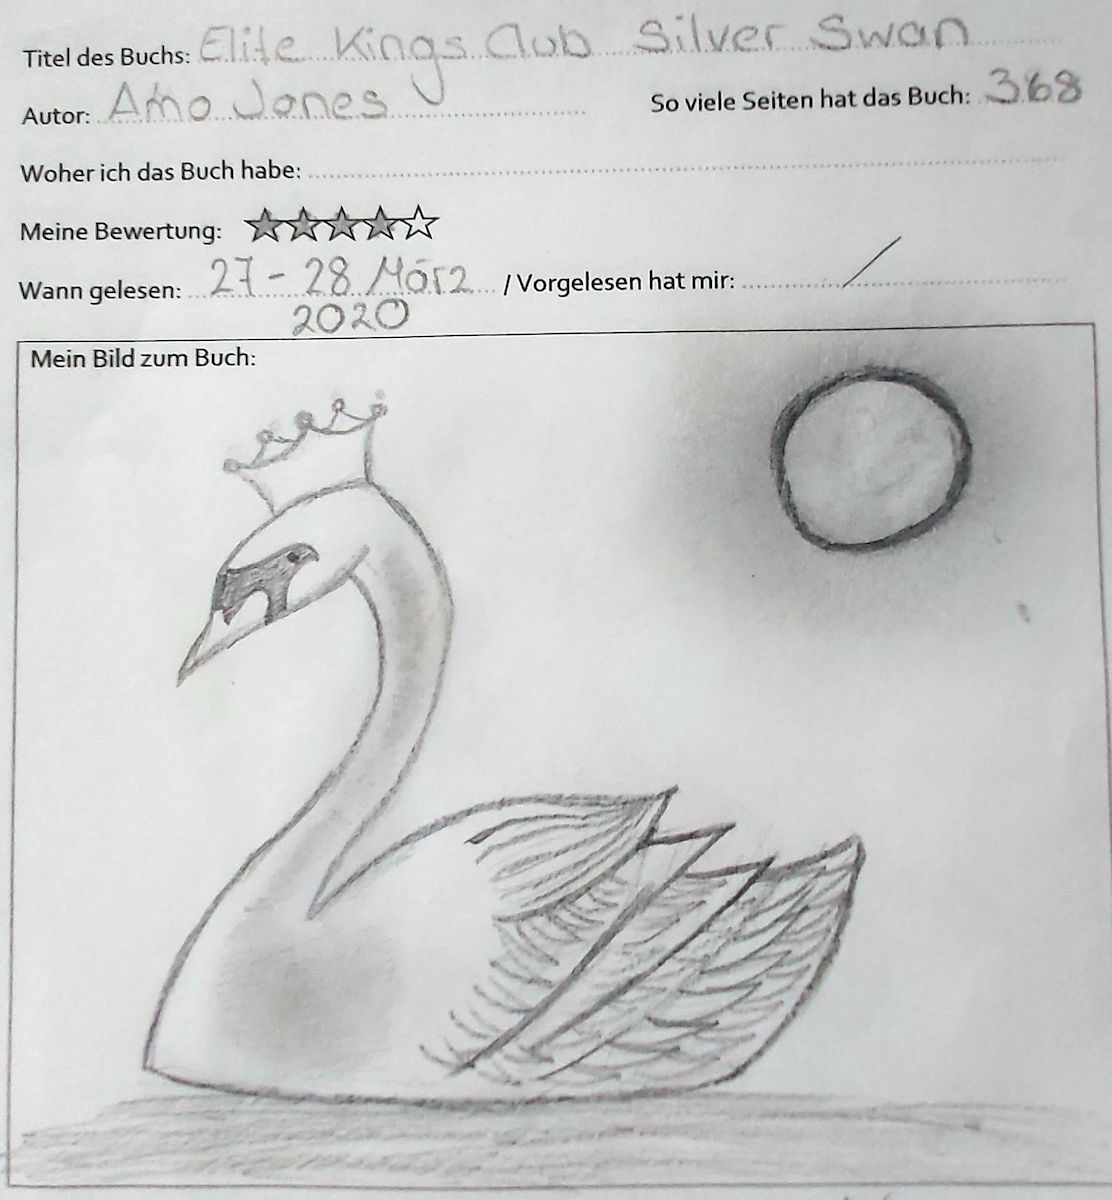 Titel des Buchs: Elite Kings Club Silver Swan
Autor: Amo Jones So viele Seiten hat das Buch: 368
Woher ich das Buch habe:
Meine Bewertung:
Wann gelesen: 27 - 28 März / Vorgelesen hat mir: /
2020
Mein Bild zum Buch: